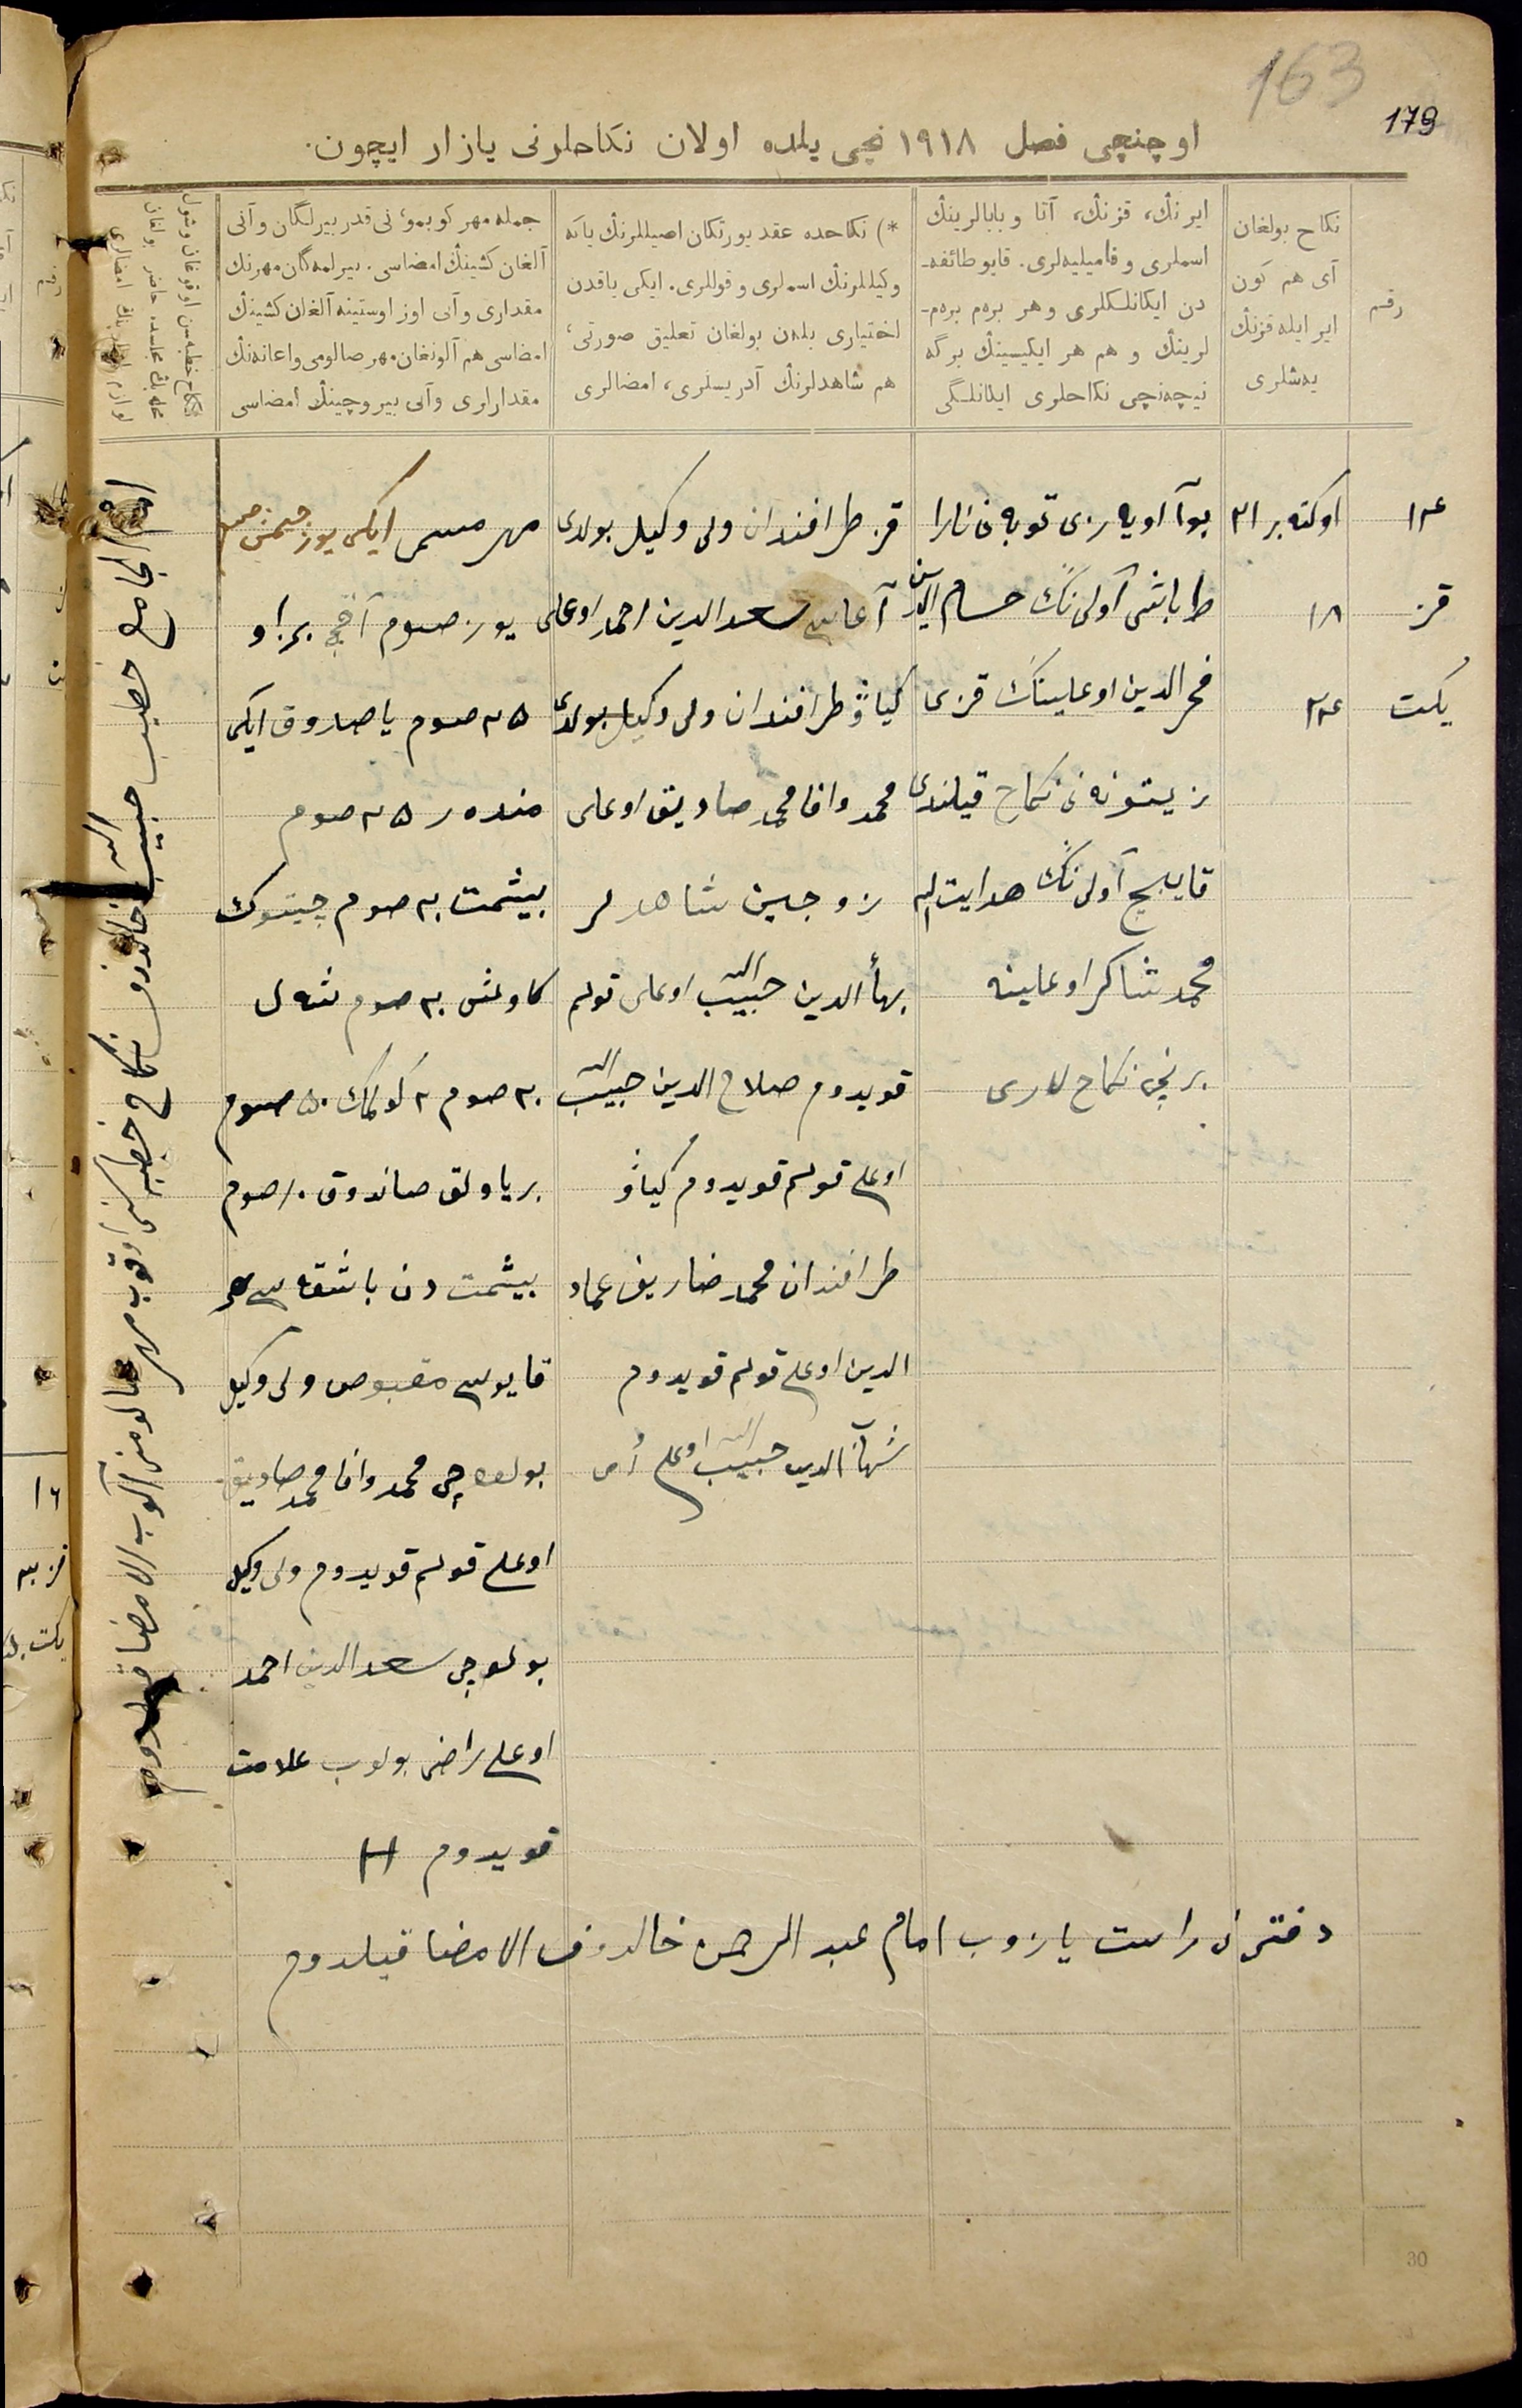 163
179
اوچنچی فصل ۱۹۱۸ نچی یلده اولان نکاحلرنی یازار ایچون.
رقم
نکاح بولغان
آی هم کون
ایر ایله قزنڭ
یه‌شلری
ایرنڭ، قزنڭ، آتا و بابالرینڭ
اسملری و فامیلیه‌لری. قایو طائفه‌-
دن ایکانلکلری و هر بره‌م بره‌م-
لرینڭ و هم هر ایکیسینڭ برگه
نیچه‌نچی نکاحلری ایکانلگی
*) نکاحده عقد یورتکان اصیللرنڭ یاکه
وکیللرنڭ اسملری و قوللری. ایکی یاقدن
اختیاری بله‌ن بولغان تعلیق صورتی،
هم شاهدلرنڭ آدریسلری، امضالری
جمله مهر کوبمو، نی قدر بیرلگان و آنی
آلغان کشینڭ امضاسی. بیرلمه‌گان مهرنڭ
مقداری و آنی اوز اوستینه آلغان کشینڭ
امضاسی هم آلونغان مهر صالومی و اعانه‌نڭ
مقدارلری و آنی بیروچینڭ امضاسی
۱۴
قز
یکت
اوکتەبر ۳۱
۱۸
۲۴
بوآ اویه‌زی توبه‌ن نارا
طاباشی آولی نڭ حسام الدین
فخر الدین اوغلینڭ قزی
زیتونه نی نکاح قیلندی
آولی نڭ هدایت الله
محمد شاکر اوغلینه
برنچی نکاح لاری
قز طرافندان ولی وکیل بولدی
آغاسی سعد الدین احمد اوغلی
کیاؤ طرافندان ولی وکیل بولدی
محمد وافا محمد صادیق اوغلی
زوجین شاهدلر
بهأ الدین حبیب الله اوغلی قولم
قویدوم صلاح الدین حبیب الله
اوغلی قولم قویدوم کیاؤ
طرافندان محمد ضاریف عماد
الدین اوغلی قولم قویدوم
شهاب الدین حبیب الله اوغلی
مهر مسمی ایکی یوز
یوز صوم آقچه
۲۵ صوم یاصدوق ایکی
منده‌ر ۲۵ صوم
بیشمت ۲۰ صوم چیتوك
کاوش ۲۰ صوم شه‌ل
۲۰ صوم ۲ کولمك ۵۰ صوم
بر یاولق صاندوق ۱۰ صوم
بیشمت دن باشقه سی
مقبوض ولی وکیل
بولوچی محمد وافا محمد صادیق
اوغلی قولم قویدوم ولی وکیل
بولوچی سعد الدین احمد
اوغلی راضی بولوب علامت
قویدوم H
دفترنی راست یازوب امام عبد الرحمن خالدوف الامضا قیلدوم
امام الجامع خطیب حبیب الله خالدوف نکاح خطبه سنی اوقوب مهر صالومنی آلوب الامضا قیلدوم
30